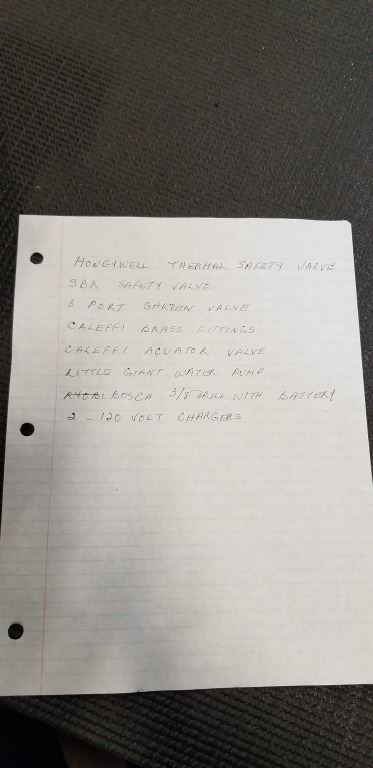 HONEYWELL THERMAL SAFETY VALVE
SBR SAFETY VALVE
3 PORT GARDEN VALVE
CALEFFI BRASS FITTINGS
CALEFFI ACUATOR VALVE
LITTLE GIANT WATER PUMP
RYOBI BOSCH 3/8 DRILL WITH BATTERY
2 - 120 VOLT CHARGERS